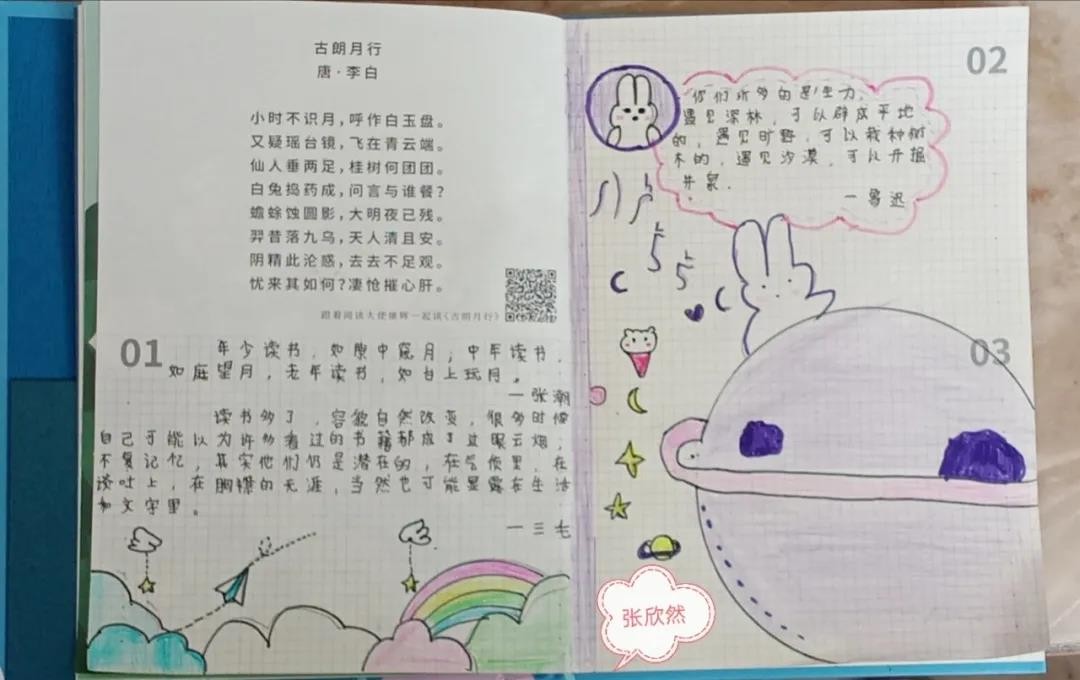 古朗月行
唐·李白
小时不识月，呼作白玉盘。
又疑瑶台镜，飞在青云端。
仙人垂两足，桂树何团团。
白兔捣药成，问言与谁餐？
蟾蜍蚀圆影，大明夜已残。
羿昔落九乌，天人清且安。
阴精此沦惑，去去不足观。
忧来其如何？凄怆摧心肝。
一起读《古朗月行》
01
年少读书，如隙中窥月；中年读书，
如庭望月，老年读书，如台上玩月。
一张潮
读书多了，容貌自然改变，很多时候
自己可能以为许多看过的书籍都成了过眼云烟，
不复记忆，其实他们仍是潜在的，在气质里，在
谈吐上，在胸襟的无涯，当然也可能显露在生活
和文字里。
一三毛
02
你们所多的是生力，
遇见深林，可以辟成平地
的，遇见旷野，可以栽种树
木的，遇见沙漠，可以开掘
井泉.
一鲁迅
03
张欣然